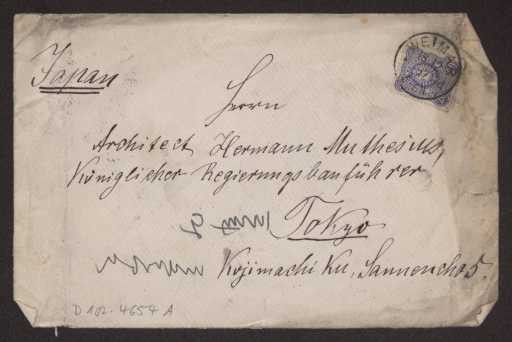 WEIMAR
Japan
Herrn
Architect Hermann Muthesius,
Königlicher Regierungsbauführer
Tokyo
Kojimachi Ku, Sannencho 5.
D 102-4654 A